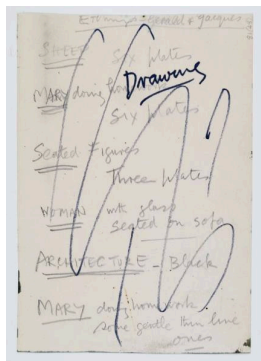 SHEEP Six plates
Drawing
MARY doing homework
Six plates
Seated Figures
Three plates
WOMAN with glass
seated on sofa
ARCHITECTURE - Black
MARY doing homework
some gentle thin line
ones